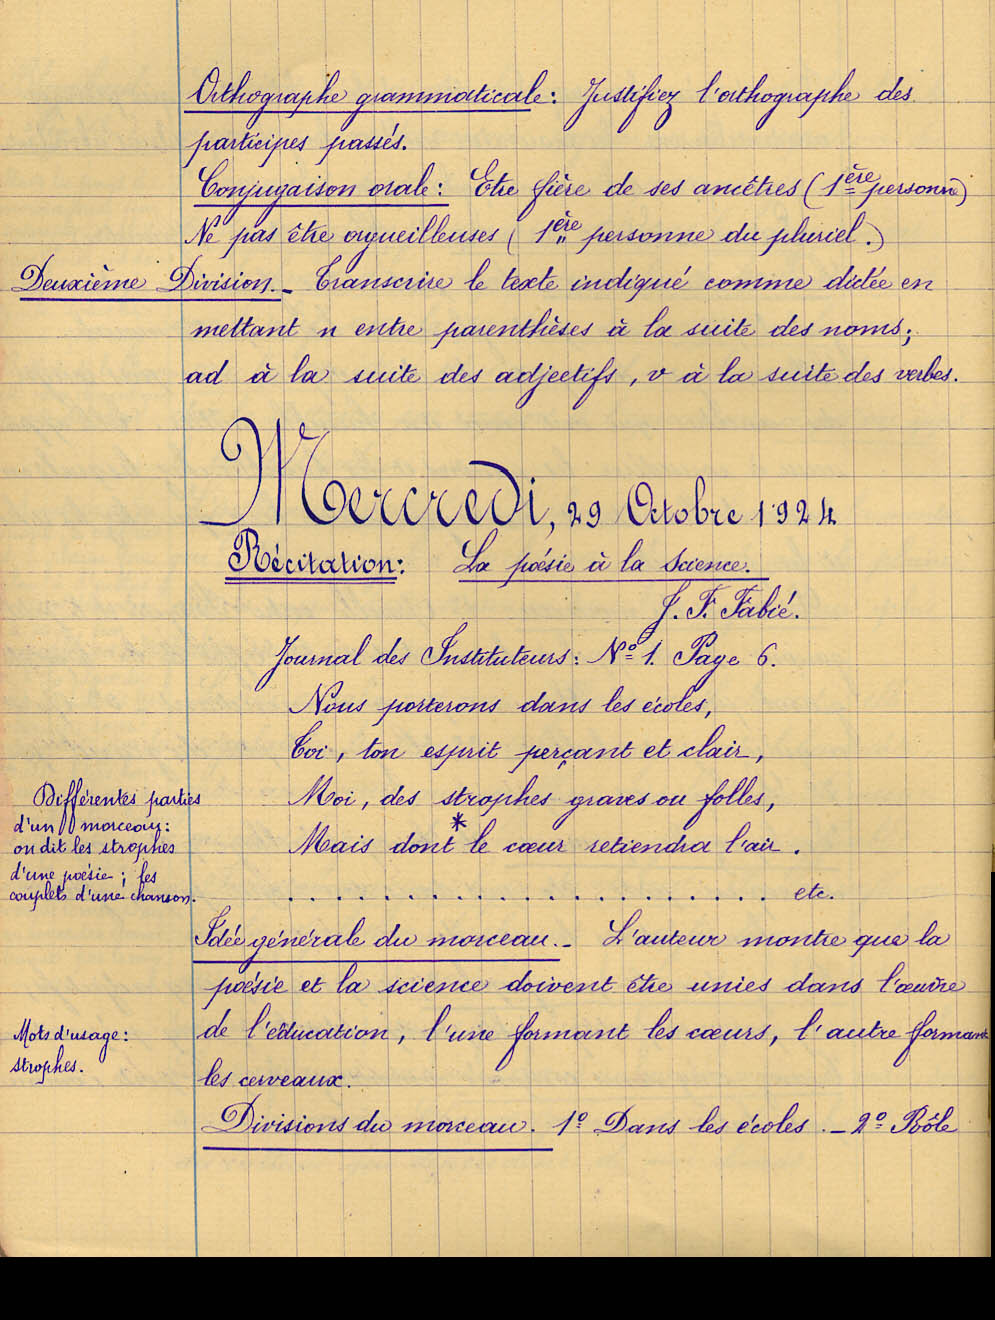 Orthographe grammaticale: Justifiez l'orthographe des
participes passés.
Conjugaison orale: Etre fière de ses ancêtres (1ère personne)
Ne pas être orgueilleuses (1ère personne du pluriel.)
Deuxième Division._ Transcrire le texte indiqué comme dictée en
mettant n entre parenthèses à la suite des noms;
ad à la suite des adjectifs, v à la suite des verbes.
Mercredi, 29 Octobre 1924
Récitation: La poésie à la Science.
J. F. Fabié.
Journal des Instituteurs: Nº 1. Page 6.
Nous porterons dans les écoles,
Toi, ton esprit perçant et clair,
Moi, des strophes graves ou folles,
*
Mais dont le cœur retiendra l'air.
. . . . . . . . . . . . . . . . . . . . . . . etc.
Différentes parties
d'un morceau:
on dit les strophes
d'une poésie; les
couplets d'une chanson.
Idée générale du morceau._ L'auteur montre que la
poésie et la science doivent être unies dans l'œuvre
de l'éducation, l'une formant les cœurs, l'autre formant
les cerveaux.
Mots d'usage:
strophes.
Divisions du morceau. 1º Dans les écoles ._ 2º Rôle